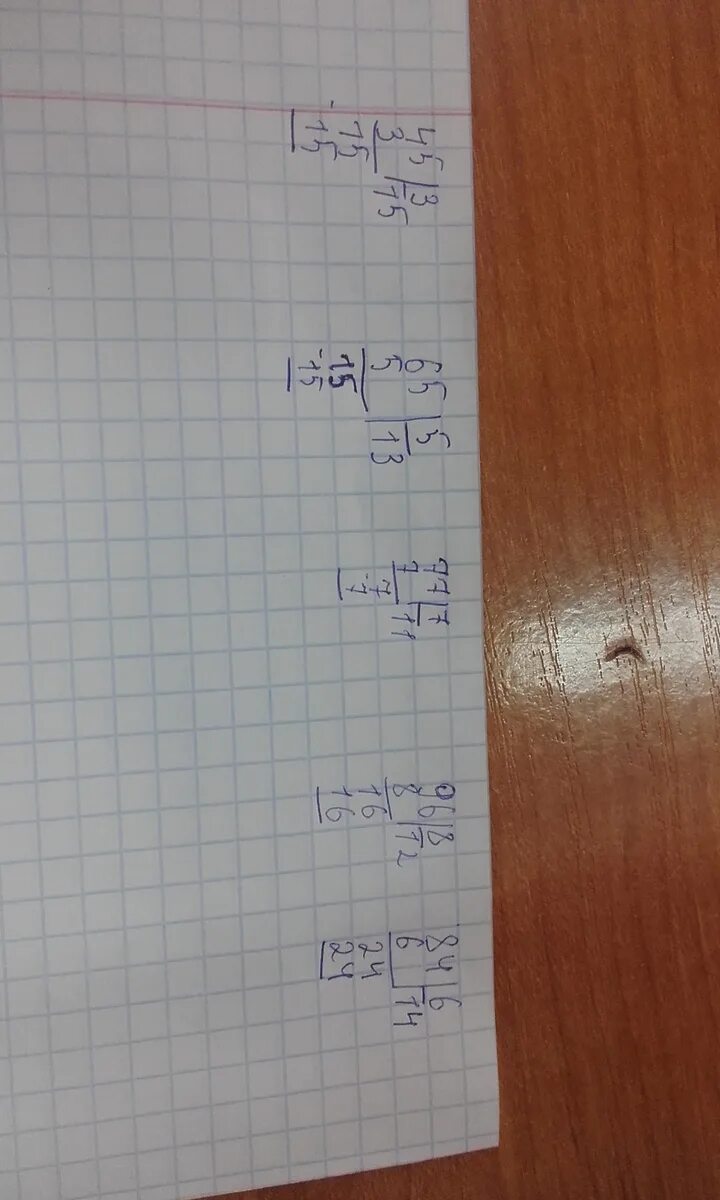 45|3
3 15
15
- 15
65|5
5 13
15
- 15
77|7
7 11
7
- 7
96|8
8 12
16
16
84|6
6 14
24
24